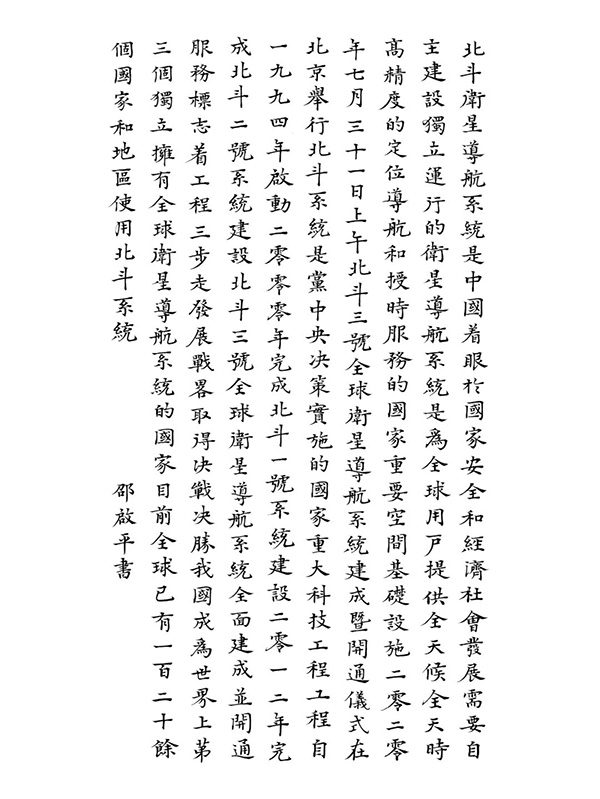 北斗衛星導航系統是中國着眼於國家安全和經濟社會發展需要自
主建設獨立運行的衛星導航系統是爲全球用戶提供全天候全天時
高精度的定位導航和授時服務的國家重要空間基礎設施二零二零
年七月三十一日上午北斗三號全球衛星導航系統建成暨開通儀式在
北京舉行北斗系統是黨中央决策實施的國家重大科技工程工程自
一九九四年啟動二零零零年完成北斗一號系統建設二零一二年完
成北斗二號系統建設北斗三號全球衛星導航系統全面建成並開通
服務標志着工程三步走發展戰畧取得决戰决勝我國成爲世界上第
三個獨立擁有全球衛星導航系統的國家目前全球已有一百二十餘
個國家和地區使用北斗系統
邵啟平書